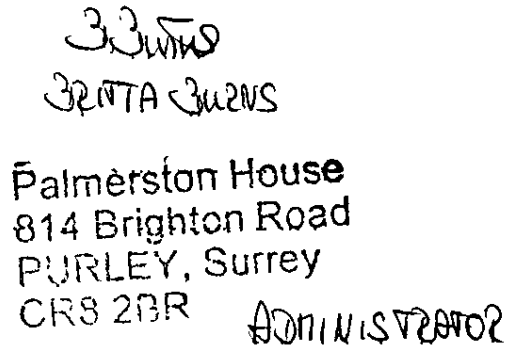 BRITTA BURNS
Palmerston House
814 Brighton Road
PURLEY, Surrey
CR8 2BR
ADMINISTRATOR